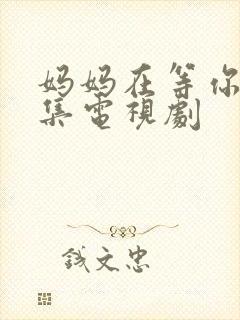 妈妈在等你
集電視劇
錢文忠